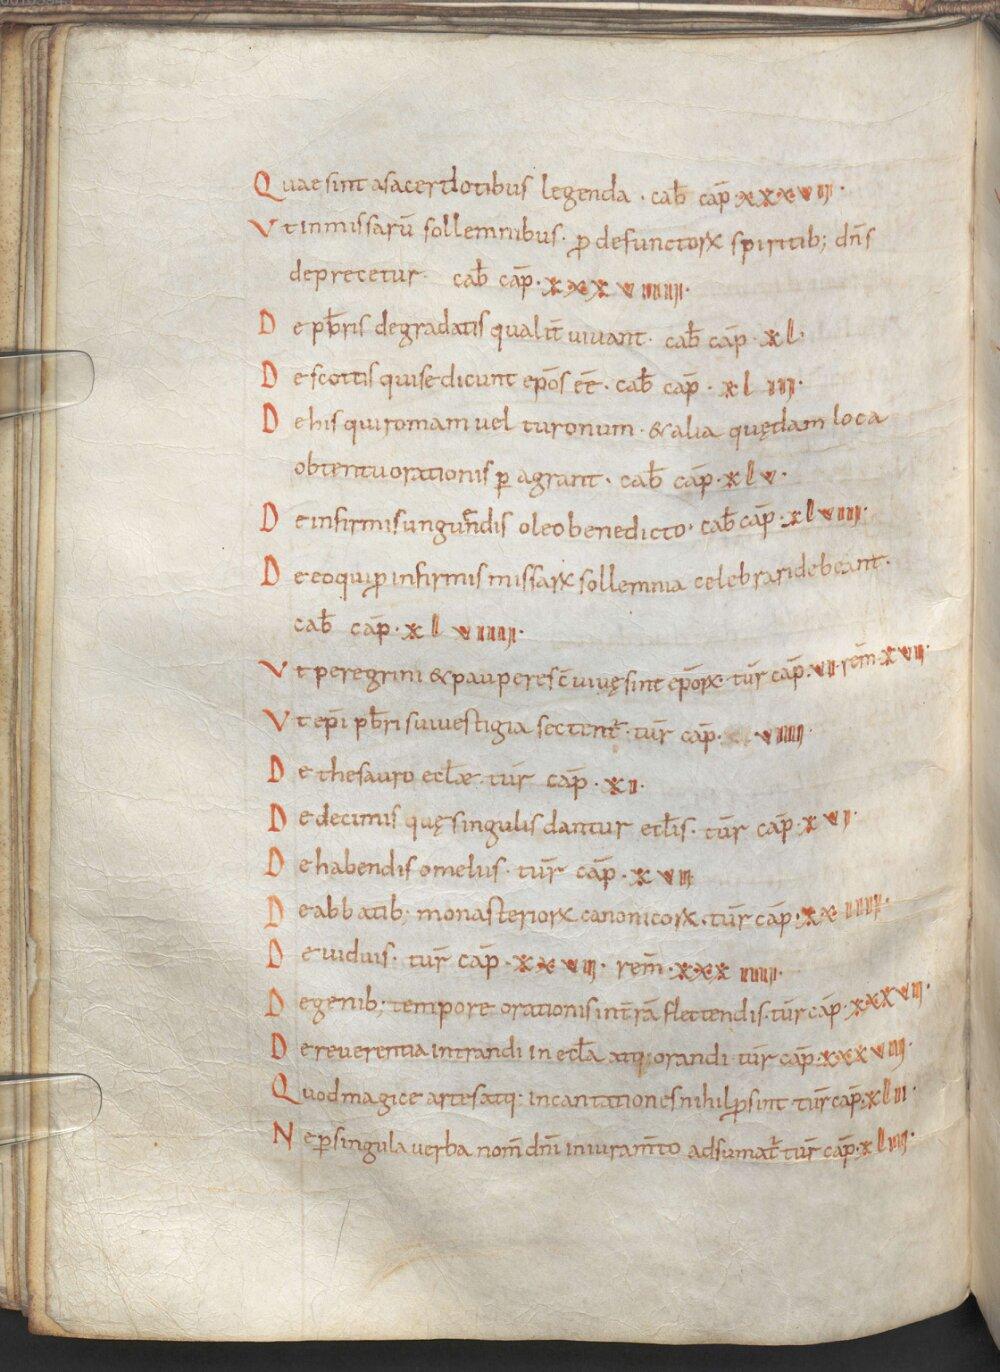 Quae sint a sacerdotibus legenda · cab̄ cap̄ xxxvii ·
Vt in missarū sollemnibus · ꝓ defunctorꝝ spiritib; dn̄s
deprecetur · cab̄ cap̄ · xxxviiiii ·
De pb̄ris degradatis qualit̄ vivant · cab̄ cap̄ · xl ·
De scottis qui se dicunt ep̄os eē · cab̄ cap̄ · xl iii ·
De his qui romam vel turonum · & alia quędam loca
obtentu orationis ꝑagrant · cab̄ cap̄ · xlv ·
De infirmis unguendis oleo benedicto · cab̄ cap̄ · xlviii ·
De eo qui ꝓ infirmis missarꝝ sollemnia celebrari debeant ·
cab̄ cap̄ · xl viiii ·
Vt peregrini & pauperes c̄vivę sint ep̄orꝝ · tūr cap̄ · vi · rem̄ · xvii ·
Vt ep̄i pb̄ri sui vestigia sectent̄ · tūr cap̄ · viiii
De thesauro ecl̄ae · tūr cap̄ · xi ·
De decimis quę singulis dantur ecl̄is · tūr cap̄ · xvi ·
De habendis omeliis · tūr cap̄ · xvii
De abbatib; monasteriorꝝ canonicorꝝ · tūr cap̄ · xxiiii ·
De viduis · tūr cap̄ · xxvii · rem̄ · xxxiiii ·
De genib; tempore orationis in t̄rā flectendis · tūr cap̄ · xxxvii ·
De reverentia intrandi in ecl̄a atq; orandi · tūr cap̄ · xxxviii ·
Quod magice artes atq; incantationes nihil ꝓsint tūr cap̄ · xlii ·
Ne ꝑ singula verba nom̄ dn̄i in iuram̄to adsumat̄ tūr cap̄ · xliii ·